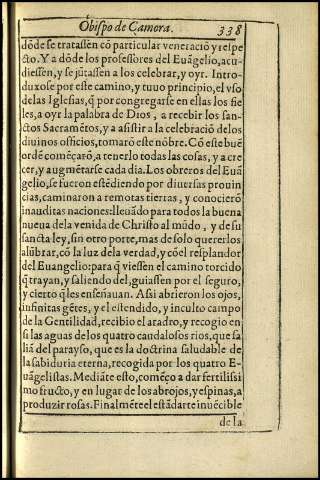 Obispo de Çamora. 338
dõde se tratassẽn cõ particular veneraciõ y respe
cto. Y a dõde los professores del Euãgelio, acu-
diessen, y se jũtassẽn a los celebrar, y oyr. Intro-
duxose por este camino, y tuuo principio, el vso
delas Iglesias, q̃ por congregarse en ellas los fie
les, a oyr la palabra de Dios, a recebir los san-
ctos Sacramẽtos, y a asistir a la celebraciõ delos
diuinos officios, tomarõ este nõbre. Cõ este buẽ
ordẽ començarõ, a tenerlo todas las cosas, y a cre
cer, y augmẽtarse cada dia. Los obreros del Euã
gelio, se fueron estẽdiendo por diuersas prouin
cias, caminaron a remotas tierras, y conocierõ
inauditas naciones: lleuãdo para todos la buena
nueua dela venida de Christo al mũdo, y de su
sancta ley, sin otro porte, mas de solo quererlos
alũbrar, cõ la luz dela verdad, y cõel resplandor
del Euangelio: para q̃ viessen el camino torcido
q̃ trayan, y saliendo del, guiassen por el seguro,
y cierto q̃ les enseñauan. Assi abrieron los ojos,
infinitas gẽtes, y el estendido, y inculto campo
de la Gentilidad, recibio el aradro, y recogio en
si las aguas de los quatro caudalosos rios, que sa
liã del parayso, que es la doctrina saludable de
la sabiduria eterna, recogida por los quatro E-
uãgelistas. Mediãte esto, começo a dar fertilissi
mo fructo, y en lugar de los abrojos, y espinas, a
produzir rosas. Finalmẽte el estãdarte inuẽcible
de la